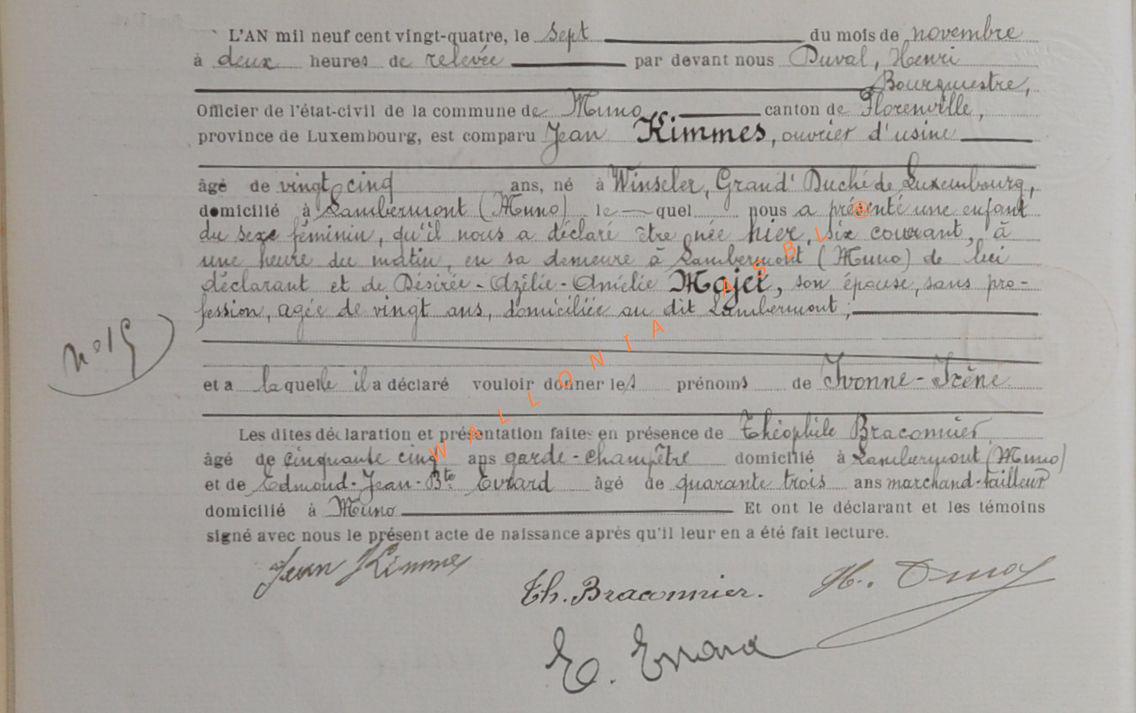 L'AN mil neuf cent vingt-quatre, le sept du mois de novembre
à deux heures de relevée par devant nous Duval, Henri
Bourgmestre,
Officier de l'état-civil de la commune de Muno canton de Florenville,
province de Luxembourg, est comparu Jean Kimmes, ouvrier d'usine
âgé de vingt cinq ans, né à Winseler, Grand' Duché de Luxembourg,
domicilié à Lambermont (Muno) lequel nous a présenté une enfant
du sexe féminin, qu'il nous a déclaré être née hier, six courant, à
une heure du matin, en sa demeure à Lambermont (Muno) de lui
déclarant et de Désirée-Azélie-Amélie Majet, son épouse, sans pro-
fession, agée de vingt ans, domiciliée au dit Lambermont;
N° 19
et a laquelle il a déclaré vouloir donner les prénoms de Yvonne-Irène
Les dites déclaration et présentation faites en présence de Théophile Braconnier
âgé de cinquante cinq ans garde-champêtre domicilié à Lambermont (Muno)
et de Edmond-Jean-Bte Evrard âgé de quarante trois ans marchand-tailleur
domicilié à Muno Et ont le déclarant et les témoins
signé avec nous le présent acte de naissance après qu'il leur en a été fait lecture.
Jean Kimmes
Th. Braconnier. H. Duval
E. Evrard
WALLONIA ASBL ©